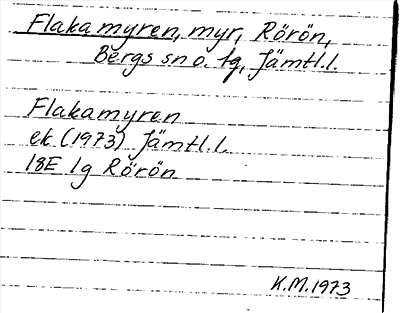 Flakamyren, myr, Rörön,
Bergs sn o. tg, Jämtl.l.
Flakamyren
ek (1973) Jämtl.l.
18E 1g Rörön
K.M.1973